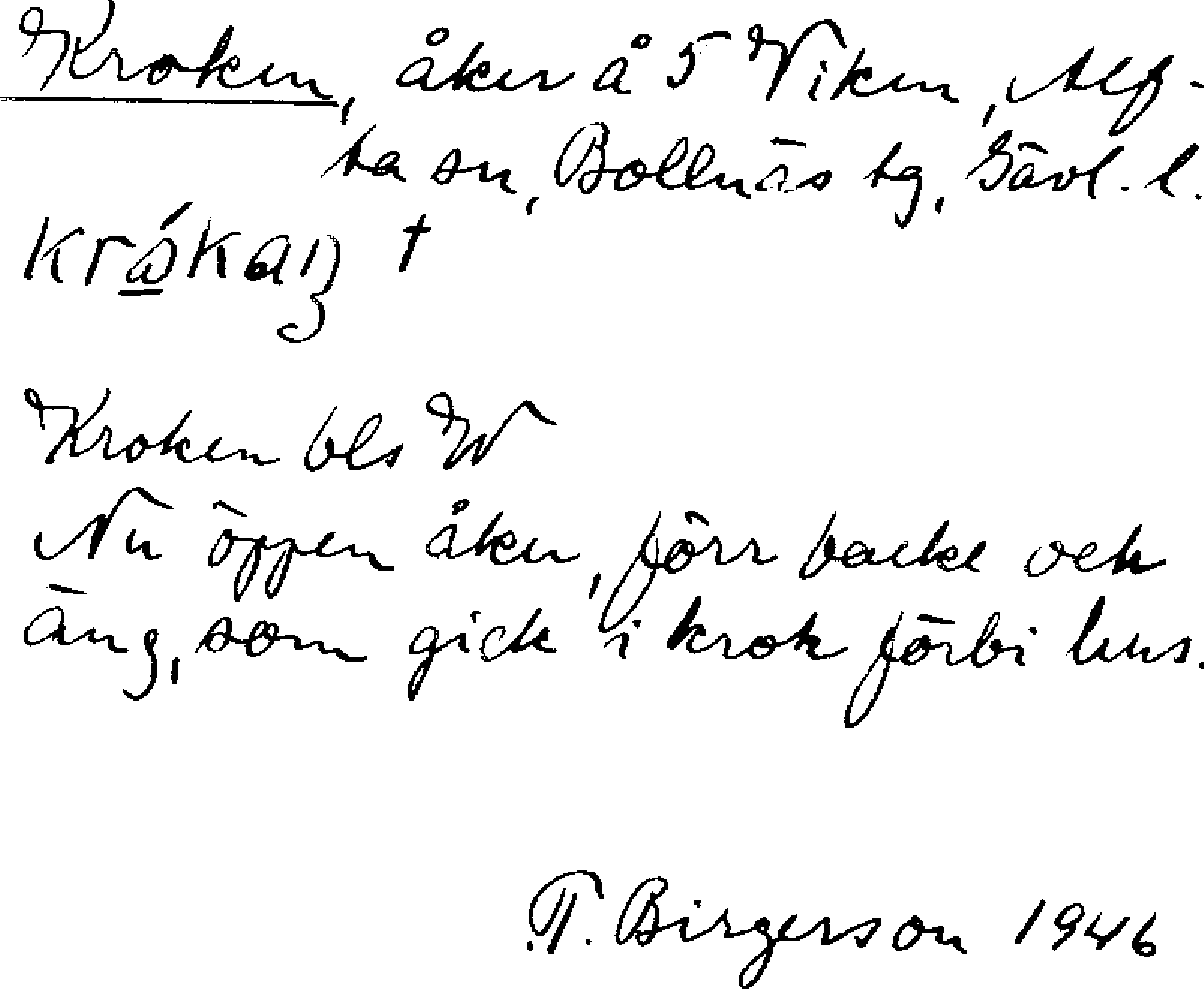 Kroken, åker å 5 Viken, Alf-
ta sn, Bollnäs tg, Gävl. l.
†
Kroken bls W
Nu öppen åker, förr backe och
äng, som gick i krok förbi hus.
T. Birgerson 1946